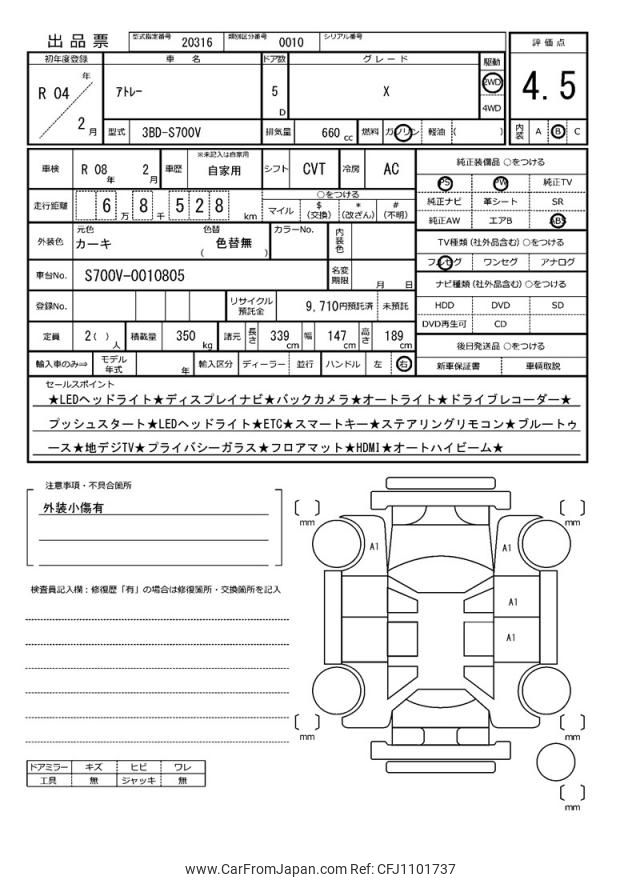 出品票
型式指定番号 20316 類別区分番号 0010 シリアル番号
評価点
4.5
内装 A B C
初年度登録 車名 ドア数 グレード 駆動
R 04 年 2 月
アトレー 5 D X 2WD 4WD
型式 3BD-S700V 排気量 660 cc 燃料 ガソリン 軽油 ( )
車検 R 08 年 2 月 車歴 ※未記入は自家用 自家用 シフト CVT 冷房 AC
走行距離 6 万 8 千 528 km
○をつける
マイル $ (交換) * (改ざん) # (不明)
外装色 元色 カーキ 色替 ( 色替無 ) カラーNo. 内装色
車台No. S700V-0010805 名変期限 月 日
登録No. リサイクル預託金 9,710円預託済 未預託
定員 2( ) 人 積載量 350 kg 諸元 長さ 339 cm 幅 147 cm 高さ 189 cm
輸入車のみ⇒ モデル年式 年 輸入区分 ディーラー 並行 ハンドル 左 右
純正装備品 ○をつける
PS PW 純正TV
純正ナビ 革シート SR
純正AW エアB ABS
TV種類 (社外品含む) ○をつける
フルセグ ワンセグ アナログ
ナビ種類 (社外品含む) ○をつける
HDD DVD SD
DVD再生可 CD
後日発送品 ○をつける
新車保証書 車輌取説
セールスポイント
★LEDヘッドライト★ディスプレイナビ★バックカメラ★オートライト★ドライブレコーダー★
プッシュスタート★LEDヘッドライト★ETC★スマートキー★ステアリングリモコン★ブルートゥ
ース★地デジTV★プライバシーガラス★フロアマット★HDMI★オートハイビーム★
注意事項・不具合箇所
外装小傷有
検査員記入欄:修復歴「有」の場合は修復箇所・交換箇所を記入
ドアミラー キズ ヒビ ワレ
工具 無 ジャッキ 無
mm
mm
A1
A1
A1
A1
mm
mm
mm
www.CarFromJapan.com Ref: CFJ1101737